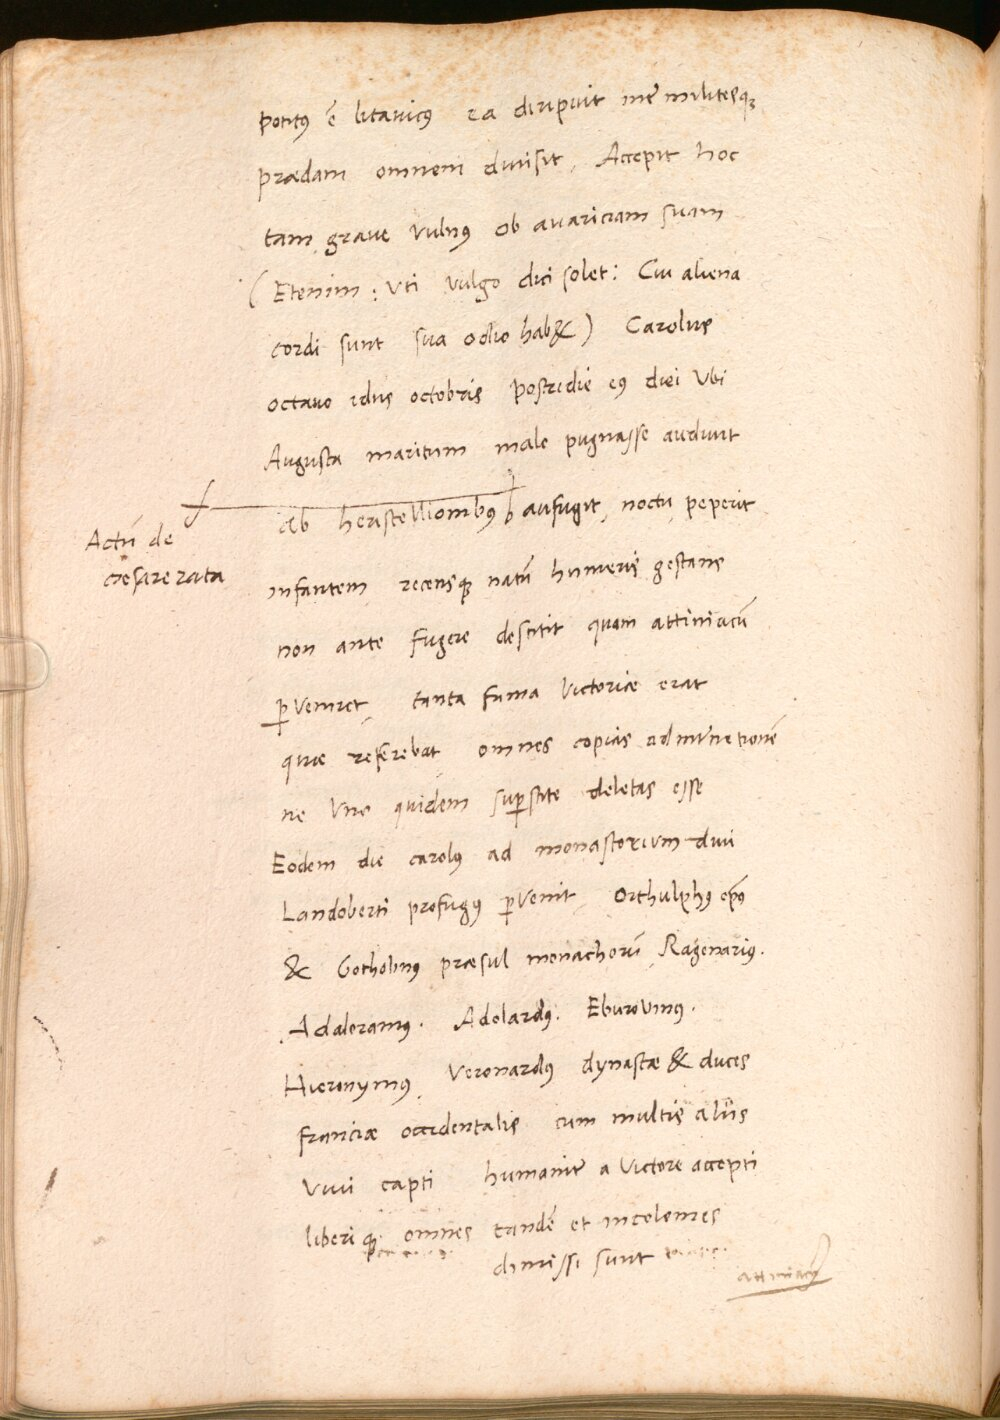 potitꝰ ē litauicꝰ ea diripuit inter militesqꝫ
prædam omnem diuisit, Accepit hoc
tam graue vulnꝰ ob auariciam suam
(Etenim: vti vulgo dici solet: Cui aliena
cordi sunt sua odio hab&) Carolus
octauo idus octobris postridie eꝰ diei Vbi
Augusta maritum male pugnasse audiuit
ab heristelliombꝰ aufugit, noctu peperit
Actū de
cæsare rata
infantem recensqꝫ natū humeris gestans
non ante fugere destitit quam attiniacū
ꝑveniret, tanta fama victoriæ erat
quæ referebat omnes copias ad internetionē
ne vno quidem suꝑstite deletas esse
Eodem die carolꝰ ad monasterium diui
Landoberti profugꝰ ꝑvenit, Orthulphꝰ epōs
& Gotholinꝰ præsul monachorū Ragenariꝰ.
Adaloramꝰ. Adelardꝰ. Eburovinꝰ.
Hieronymꝰ, Veronardꝰ dynastæ & duces
franciæ occidentalis cum multis alijs
viui capti humaniter a victore accepti
liberiqꝫ omnes tandē et incolomes
dimissi sunt
attiniacū